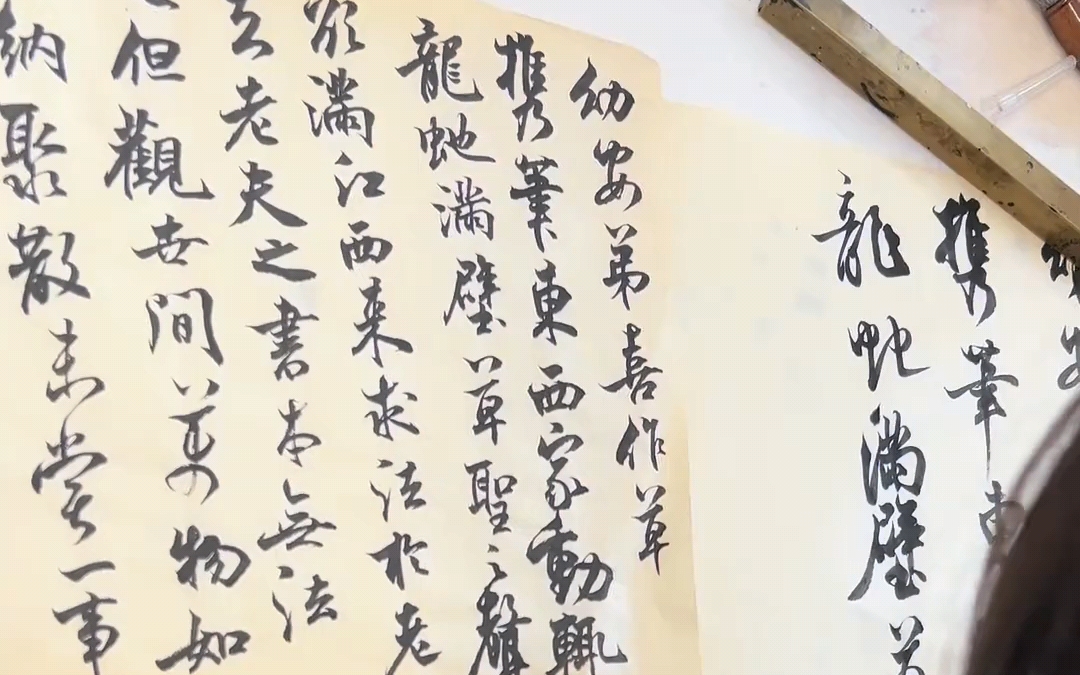 安
攜筆東
龍蛇滿壁草
幼安弟喜作草
攜筆東西家動輒
龍蛇滿壁草聖之聲
欲滿江西來求法於老
老夫之書本無法
但觀世間萬物如
納聚散未嘗一事